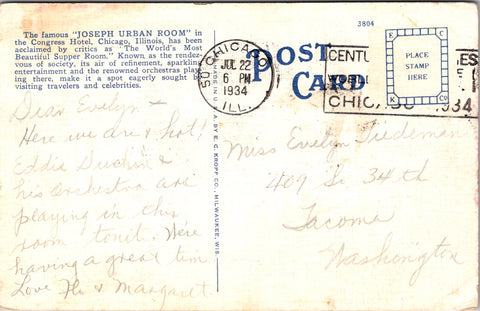 The famous "JOSEPH URBAN ROOM" in
the Congress Hotel, Chicago, Illinois, has been
acclaimed by critics as "The World's Most
Beautiful Supper Room." Known as the rendez-
vous of society, its air of refinement, sparkling
entertainment and the renowned orchestras play-
ing there, make it a spot eagerly sought by
visiting travelers and celebrities.
3804
POST CARD
CHICAGO
JUL 22
6 PM
1934
ILL.
CENTU
WORLD
CHIC
1934
E C
PLACE
STAMP
HERE
K Co
MADE IN U. S. A. BY E. C. KROPP CO., MILWAUKEE, WIS.
Dear Evelyn -
Here we are & hot!
Eddie Duchin &
his orchestra are
playing in this
room tonit. We're
having a great time
Love Flo & Margaret
Miss Evelyn Tiedeman
409 So 34th
Tacoma
Washington